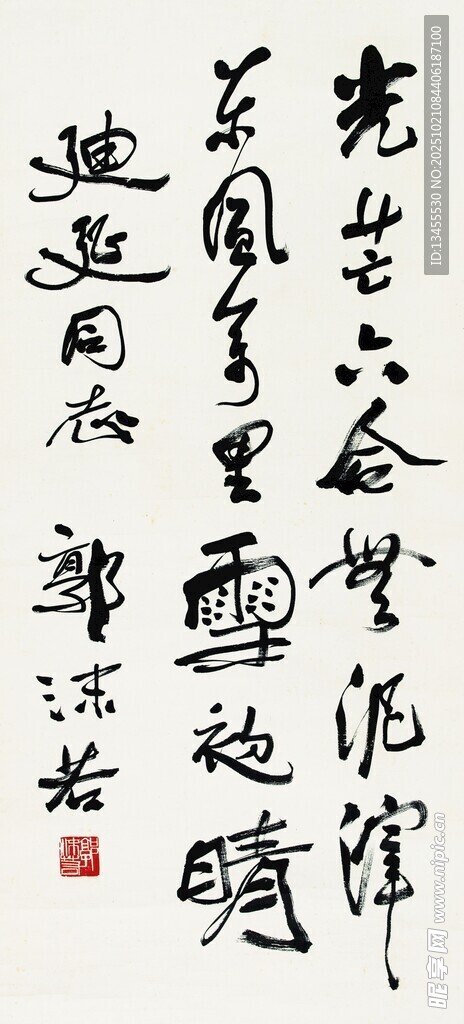 光芒六合無泥滓
東風萬里雪初晴
廸延同志 郭沫若
郭沫若
ID:13455530 NO:20251021084406187100
昵享网 www.nipic.cn